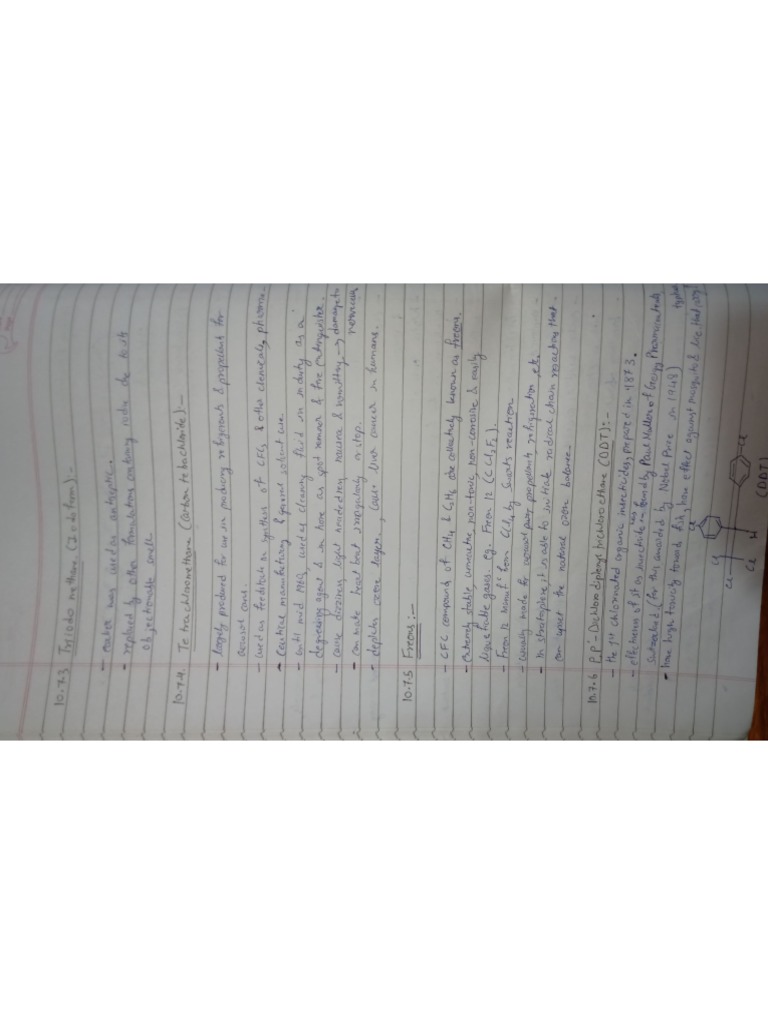 10.7.3 Triiodo methane (Iodoform):-
- earlier was used as antiseptic.
- replaced by other formulations containing iodine due to its
objectionable smell
10.7.4. Tetrachloromethane (Carbon tetrachloride):-
- largely produced for use in producing refrigerants & propellants for
aerosol cans.
- used as feedstock in synthesis of CFCs & other chemicals, pharma-
ceutical manufacturing & general solvent use.
- until mid 1960, used as cleaning fluid in industry as a
degreasing agent & in home as spot remover & fire extinguisher.
- cause dizziness, light headedness, nausea & vomitting → damage to
- can make heart beat irregularly or stop. nerve cells
- depletes ozone layer, cause liver cancer in humans.
10.7.5 Freons:-
- CFC compounds of CH4 & C2H6 are collectively known as freons.
- extremely stable, unreactive, non-toxic, non-corrosive & easily
liquefiable gases. eg. Freon 12 (CCl2F2).
- Freon 12 manuf. from CCl4 by Swarts reaction
- usually made for aerosol propellants, refrigeration etc.
- In stratosphere, it is able to initiate radical chain reactions that
can upset the natural ozone balance.
10.7.6 P,P'-Dichloro diphenyl trichloro ethane (DDT):-
- the 1st chlorinated organic insecticides, prepared in 1873.
- effectiveness of it as insecticide was found by Paul Muller of Geigy Pharmaceuticals
(for this awarded by Nobel Price in 1948) typhus
- have high toxicity towards fish, have effect against mosquito & lice that carry
Cl Cl Cl
Cl Cl H
(DDT)